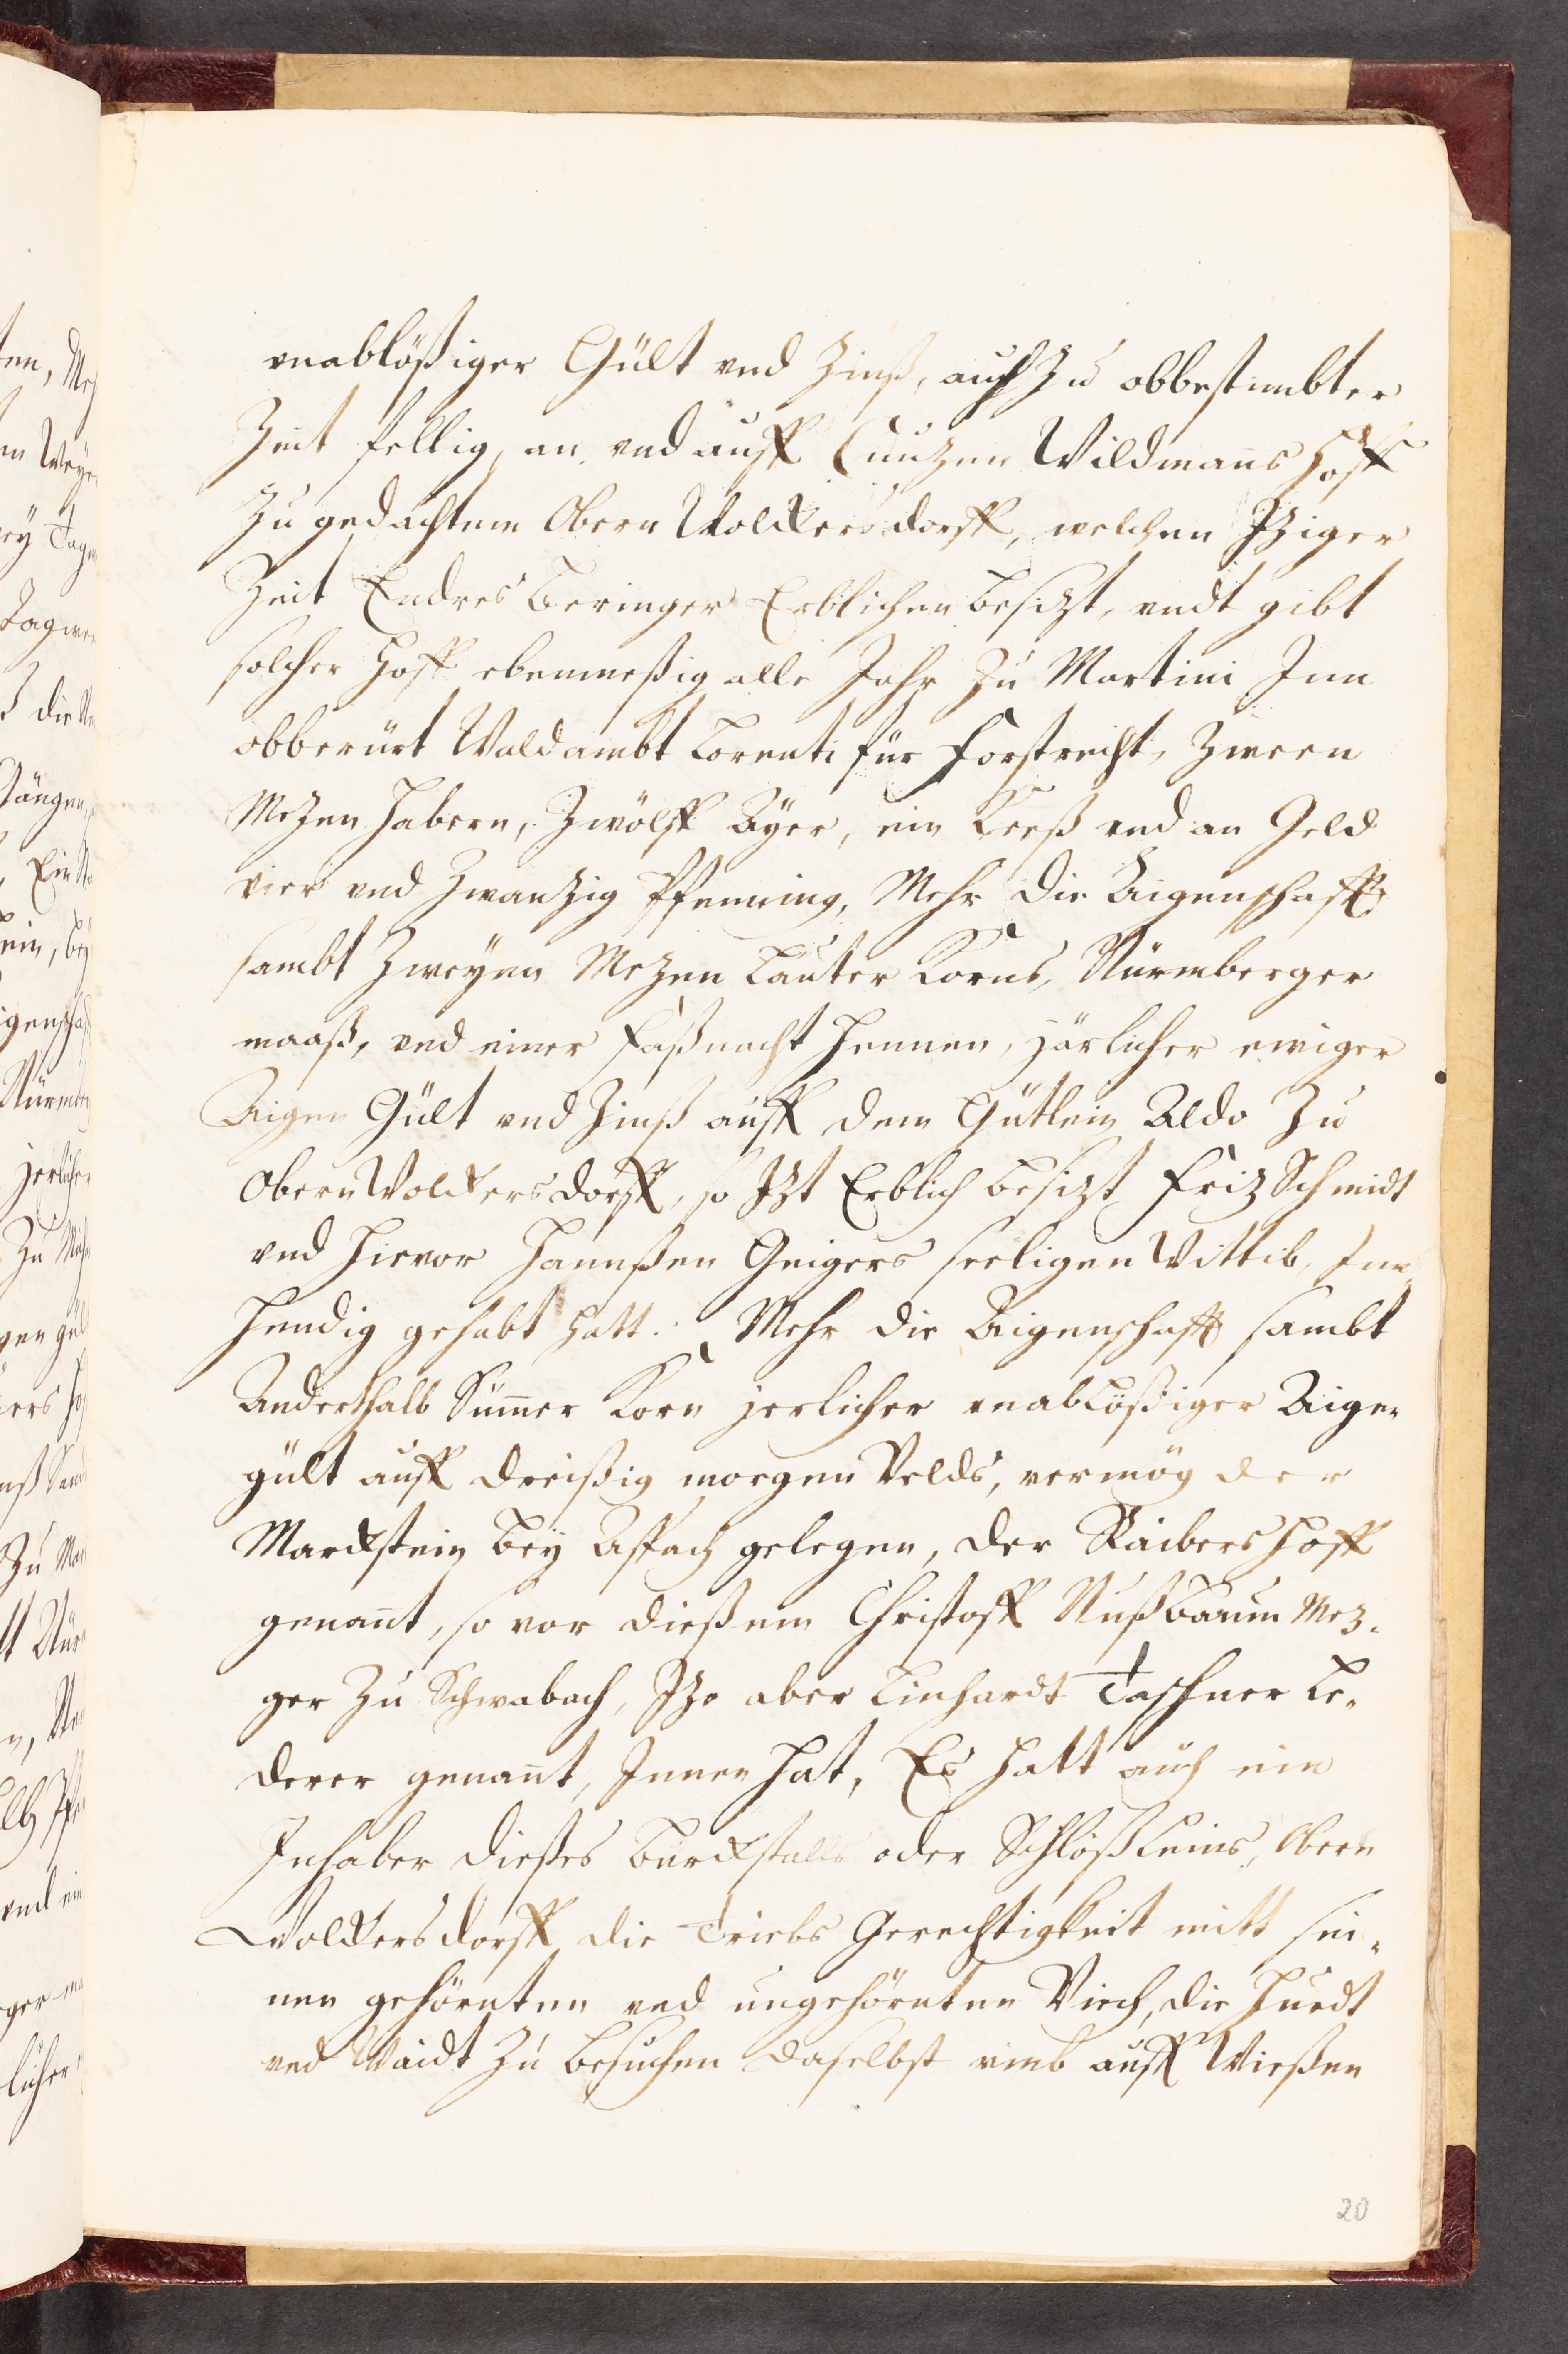 vnablößiger Gült vnd Zinß, auch Zu obbestimbter
Zeit fellig, an vnd auff Cunzen Wildmanns Hoff
Zu gedachtem Obern Wolckersdorff, welchen Jziger
Zeit Endres Beringer Erblichen besizt, vndt gibt
solcher Hoff ebenmeßig alle Jahr Zu Martini Inn
obberürt Waldambt Lorenti für Forstrecht, Zween
Mezen Habern, Zwölff Ayer, ein Keeß vnd an Geld
vier vnd Zwanzig Pfenning, Mehr die Aigenschafft
sambt Zweyen Mezen Lauter Korns, Nürmberger
maaß, vnd einer Faßnacht Hennen, järlicher ewiger
Aigen Gült vnd Zinß auff dem Gütlein Aldo Zu
Obern Wolckersdorff, so Jzt Erblich besizt Friz Schmidt
vnd hievor Hannßen Geigers seeligen Wittib, Inn
Hendig gehabt hatt. Mehr die Aigenschafft sambt
Anderthalb Sümmer Korn jerlicher vnablößiger Aigen
gült auff dreißig morgen Velds, vermög der
Marckstein bey Affach gelegen, der Raibershoff
genannt, so vor dießem Christoff Nußbaum Mez-
ger Zu Schwabach, Jzo aber Linhardt Taschner Le-
derer genannt, Innen hat, Es hatt auch ein
Inhaber dießes Burckstalls oder Schlößleins, Obern
Wolckersdorff die Triebs Gerechtigkeit mitt sei-
nen gehörnten vnd ungehörnten Viech, die Huedt
vnd Waidt Zu besuchen daselbst vmb auff Wießen
20